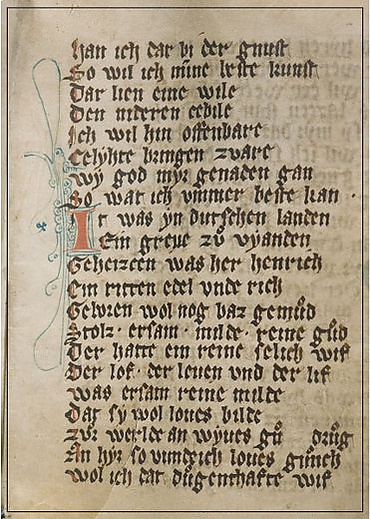 han ich dar bi der gnust
So wil ich mine beste kunst
Dar lien eine wile
Den mideren zebile
Ich wil hin offenbare
Zelyhte bringen zware
wy god myr genaden gan
So war ich ymmer beste kan ·
It was yn dutschen landen
Ein greue zů vyanden
Geheizzen was her henrich
Ein ritten edel vnde rich
Gebzren wol nog baz gemůd
Stolz · ersam · milde · reine gůd
Der hatte ein reine selich wif
Der lof · der leuen vnd der lif
was ersam reine milde
Dat sy wol loues bilde
zvr werlde an wyues gů drůg
An hyr so vundeich loues gůnch
wol ich dat důgenthafte wif